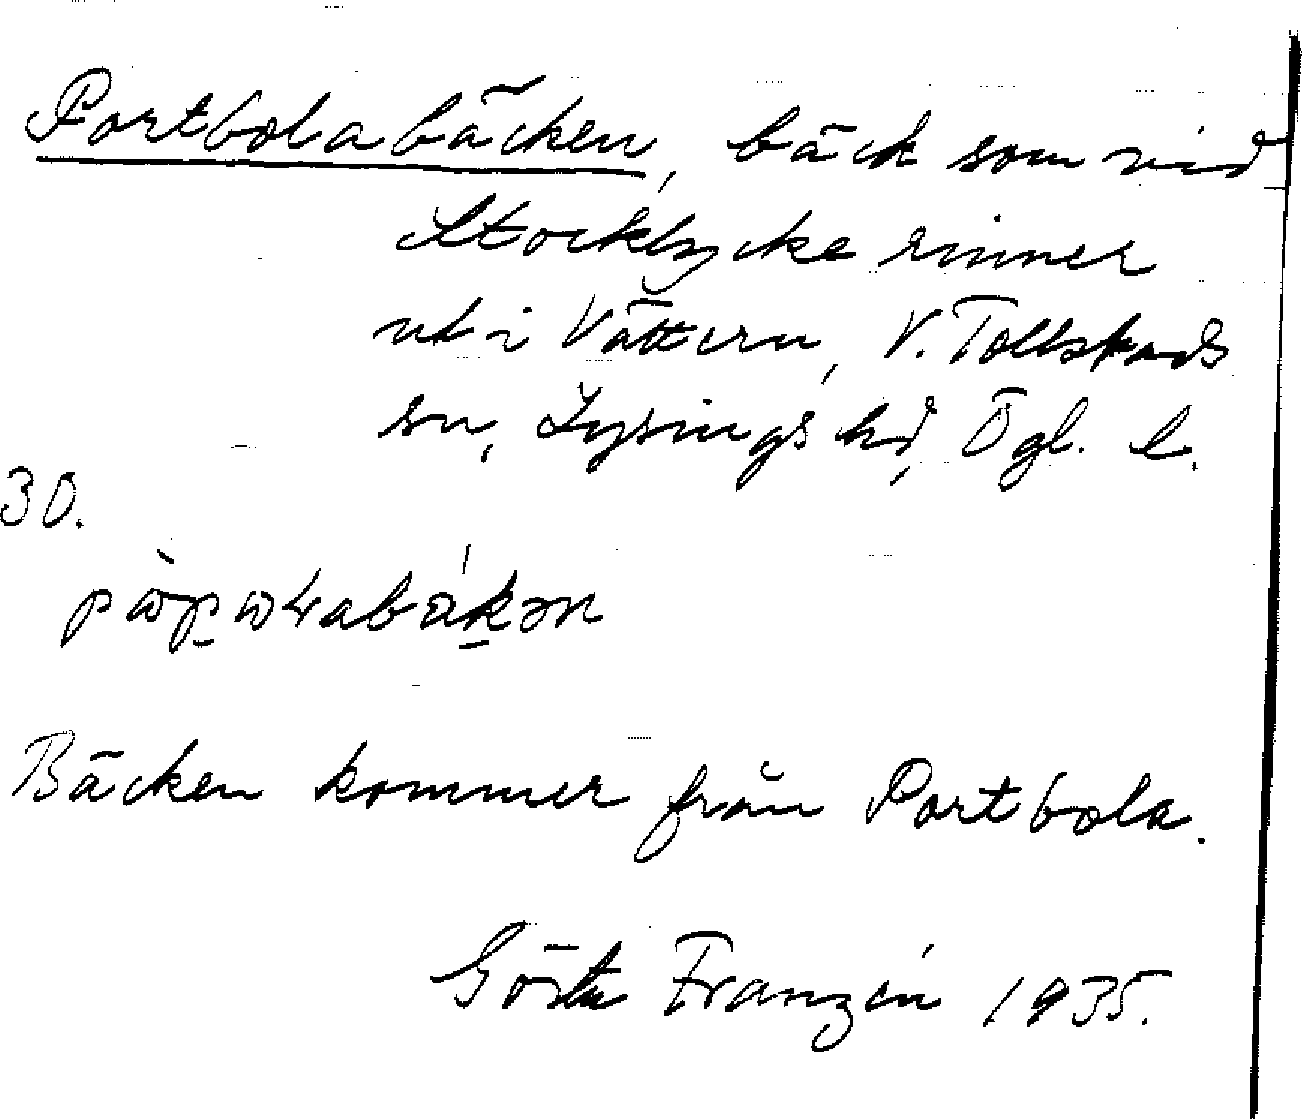 Portbolabäcken, bäck som vid
Stocklycke rinner
ut i Vättern, V. Tollstads
sn, Lysings hd, Ögl. l.
30.
Bäcken kommer från Portbola.
Gösta Franzén 1935.